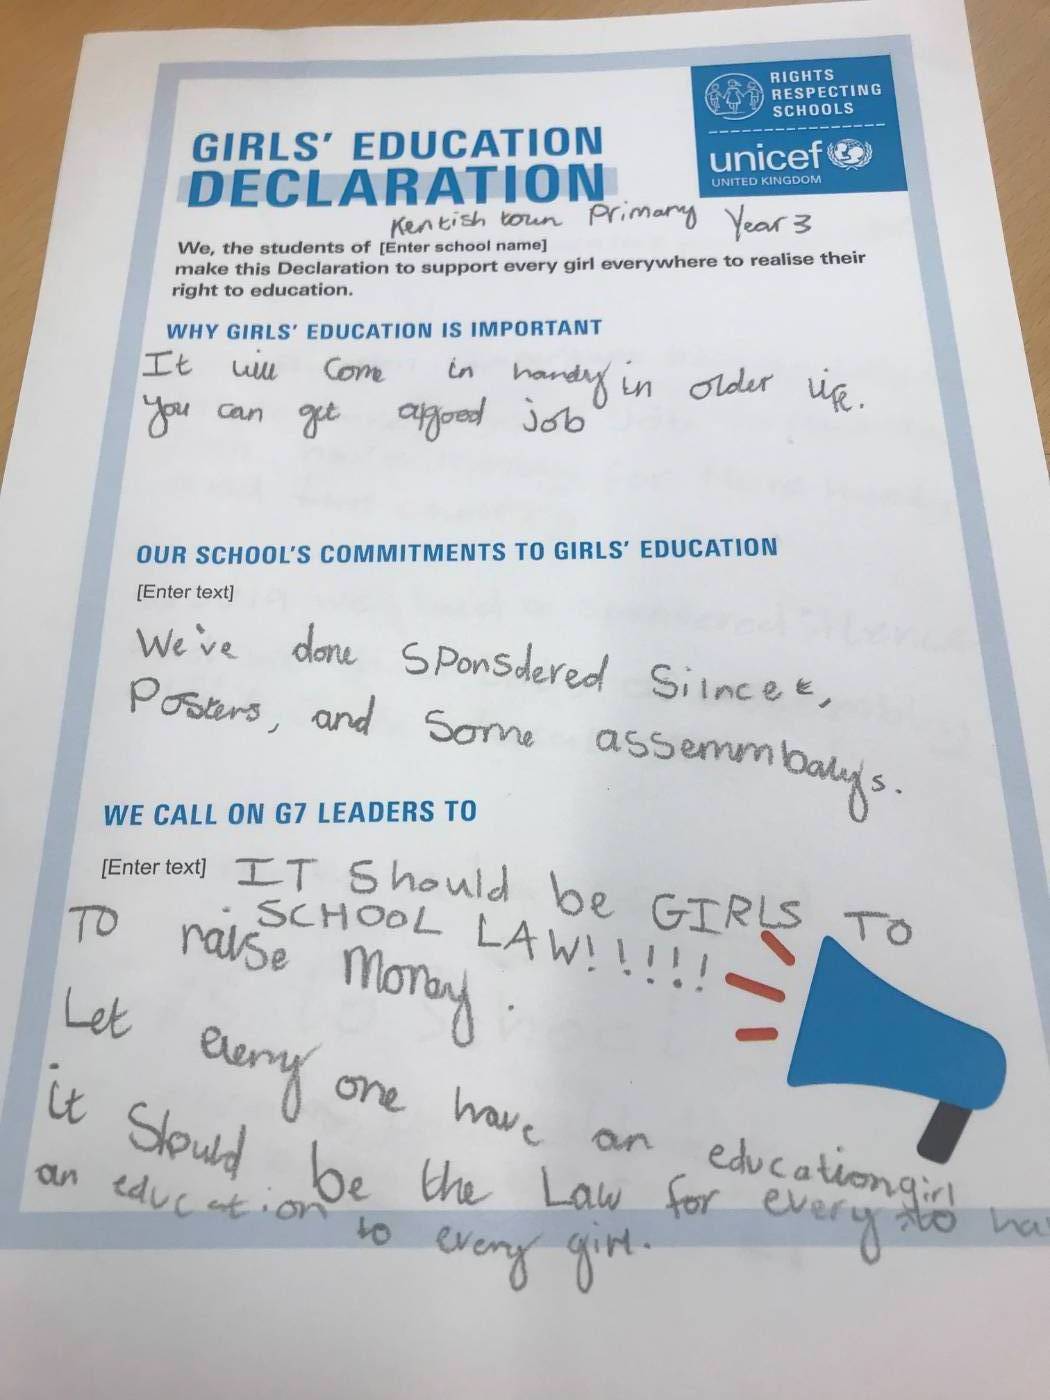 RIGHTS
RESPECTING
SCHOOLS
unicef
UNITED KINGDOM
GIRLS' EDUCATION
DECLARATION
Kentish town Primary Year 3
We, the students of [Enter school name]
make this Declaration to support every girl everywhere to realise their
right to education.
WHY GIRLS' EDUCATION IS IMPORTANT
It will come in handy in older life.
You can get a good job
OUR SCHOOL'S COMMITMENTS TO GIRLS' EDUCATION
[Enter text]
We've done sponsdered Silnce,
Posters, and Some assemmbaly's.
WE CALL ON G7 LEADERS TO
[Enter text] IT Should be GIRLS TO
SCHOOL LAW!!!!!!
To raise Money.
Let every one have an education
it Should be the Law for every girl to
an education to every girl.